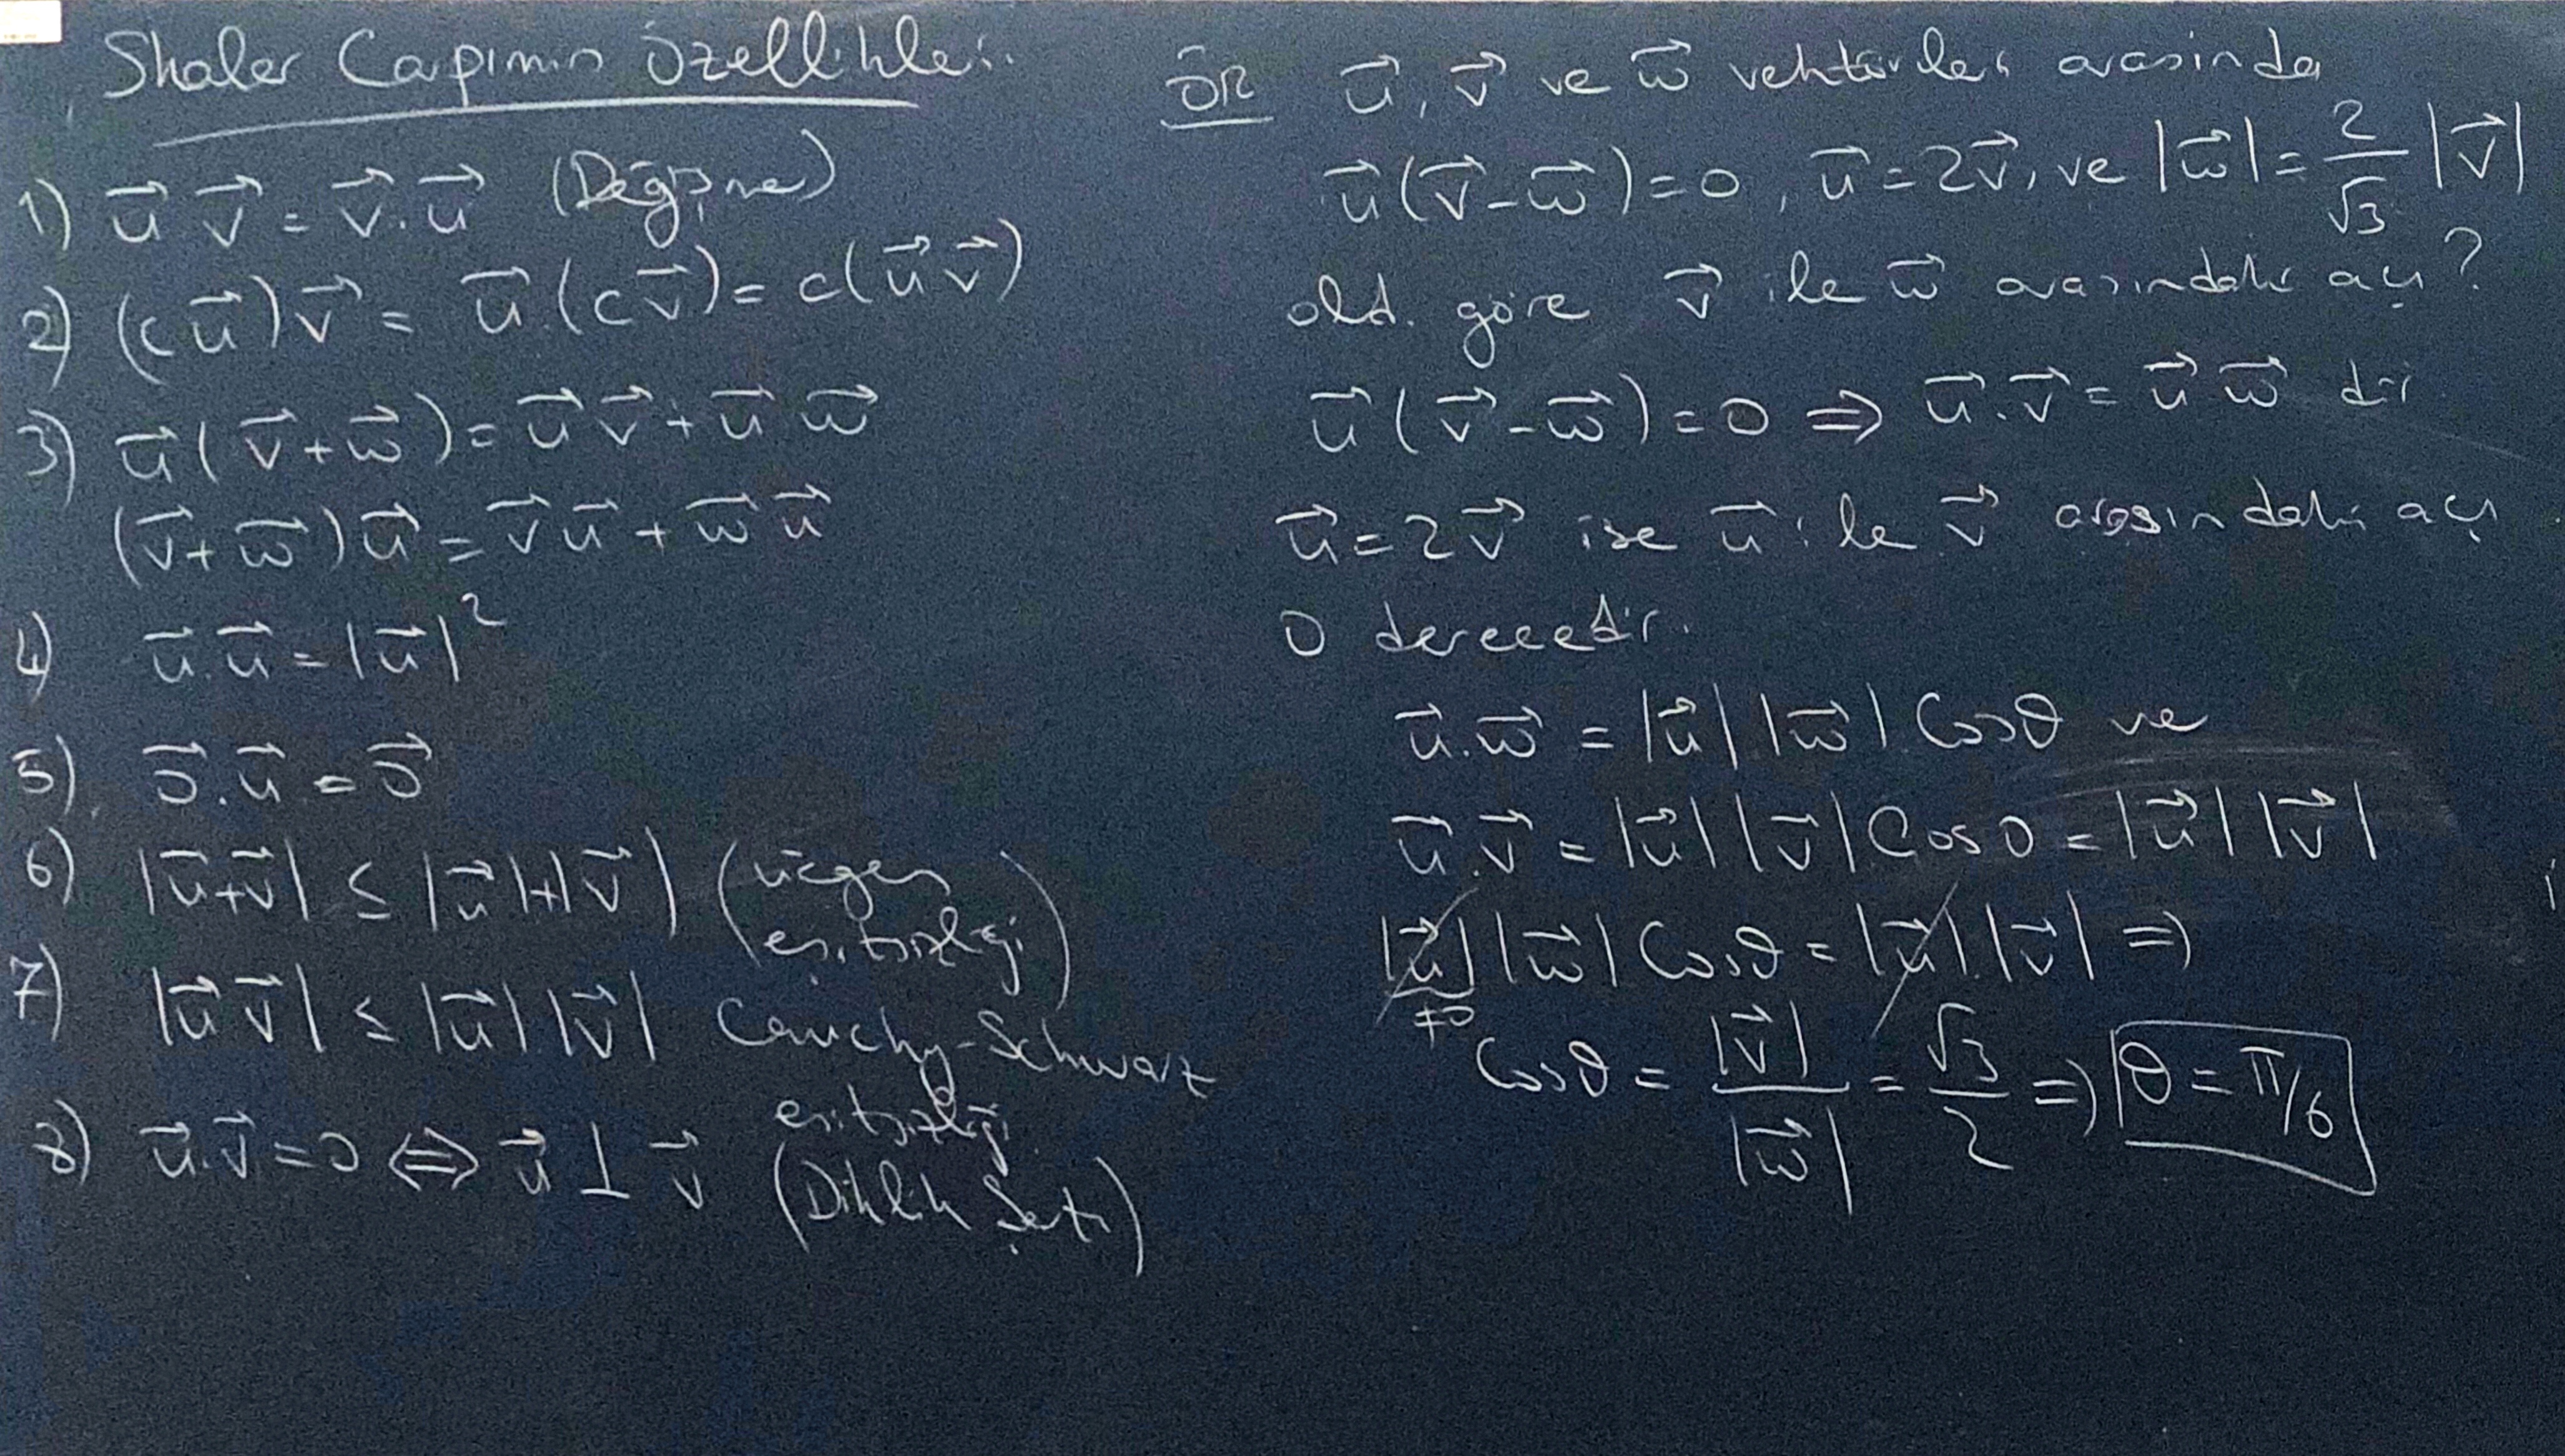 Skaler Çarpımın Özellikleri
1) u⃗ v⃗ = v⃗ . u⃗ (Değişme)
2) (c u⃗) v⃗ = u⃗ . (c v⃗) = c(u⃗ v⃗)
3) u⃗ (v⃗ + w⃗) = u⃗ v⃗ + u⃗ w⃗
(v⃗ + w⃗) u⃗ = v⃗ u⃗ + w⃗ u⃗
4) u⃗ . u⃗ = |u⃗|²
5) 0⃗ . u⃗ = 0⃗
6) |u⃗ + v⃗| ≤ |u⃗| + |v⃗| (üçgen
eşitsizliği)
7) |u⃗ v⃗| ≤ |u⃗| |v⃗| Cauchy-Schwarz
eşitsizliği
8) u⃗ . v⃗ = 0 ⇔ u⃗ ⊥ v⃗ (Diklik Şartı)
ÖR u⃗, v⃗ ve w⃗ vektörleri arasında
u⃗ (v⃗ - w⃗) = 0, u⃗ = 2v⃗, ve |w⃗| = 2/√3 |v⃗|
old. göre v⃗ ile w⃗ arasındaki açı?
u⃗ (v⃗ - w⃗) = 0 ⇒ u⃗ . v⃗ = u⃗ w⃗ dir
u⃗ = 2v⃗ ise u⃗ ile v⃗ arasındaki açı
0 derecedir.
u⃗ . w⃗ = |u⃗| . |w⃗| Cosθ ve
u⃗ . v⃗ = |u⃗| |v⃗| Cos 0 = |u⃗| |v⃗|
|u⃗| |w⃗| Cosθ = |u⃗| . |v⃗| ⇒
≠0
Cosθ = |v⃗| / |w⃗| = √3 / 2 ⇒ θ = π/6